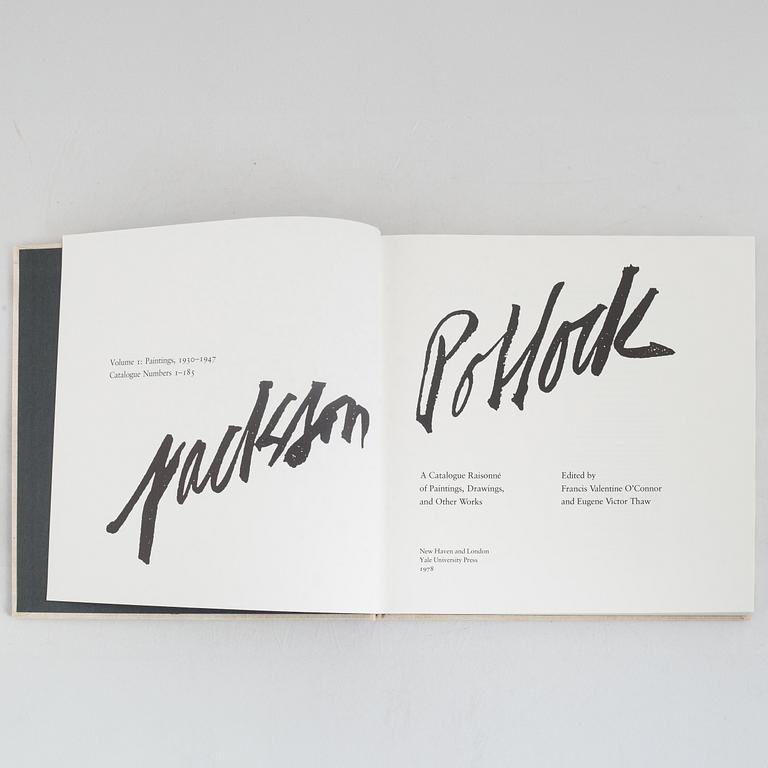 Volume 1: Paintings, 1930–1947
Catalogue Numbers 1–185
Jackson
Pollock
A Catalogue Raisonné
of Paintings, Drawings,
and Other Works
Edited by
Francis Valentine O'Connor
and Eugene Victor Thaw
New Haven and London
Yale University Press
1978